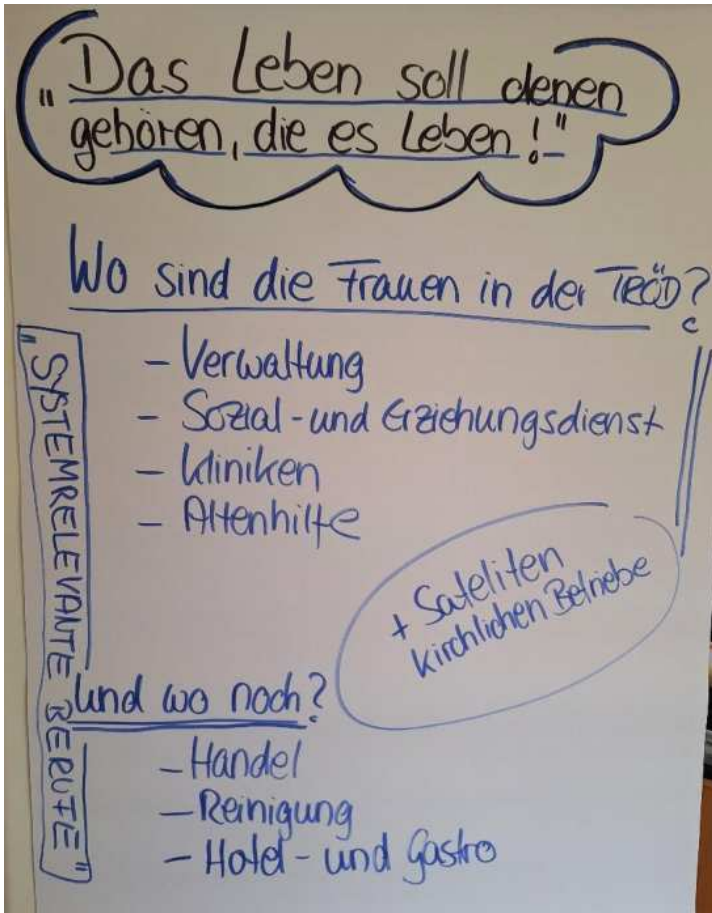 "Das Leben soll denen
gehören, die es Leben!"
Wo sind die Frauen in der TRÖD?
"SYSTEMRELEVANTE BERUFE"
- Verwaltung
- Sozial- und Erziehungsdienst
- Kliniken
- Altenhilfe
+ Sateliten
kirchlichen Betriebe
und wo noch?
- Handel
- Reinigung
- Hotel- und Gastro